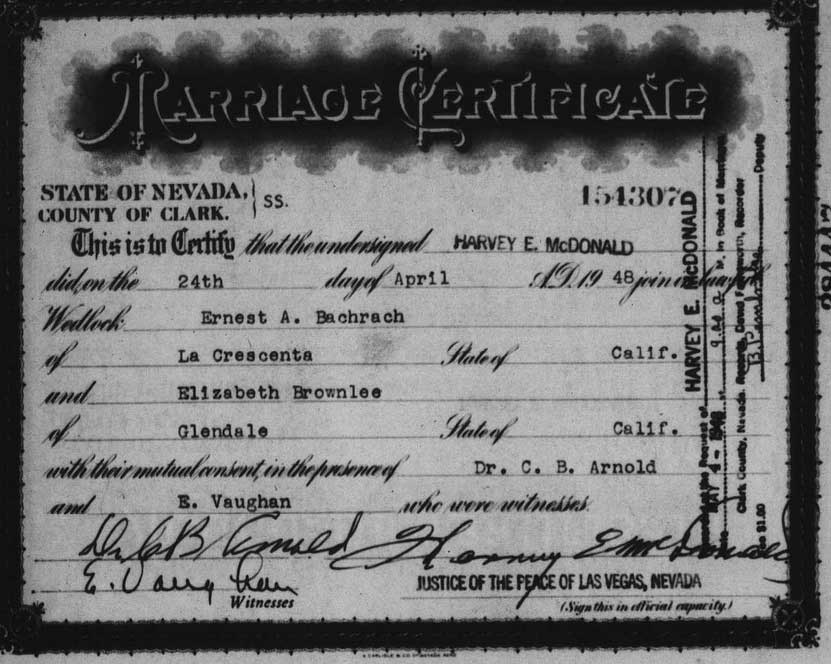 MARRIAGE CERTIFICATE
STATE OF NEVADA,
COUNTY OF CLARK. } SS.
154307
This is to Certify that the undersigned HARVEY E. McDONALD
did, on the 24th day of April A.D. 19 48 join in lawful
Wedlock Ernest A. Bachrach
of La Crescenta State of Calif.
and Elizabeth Brownlee
of Glendale State of Calif.
with their mutual consent, in the presence of Dr. C. B. Arnold
and E. Vaughan who were witnesses.
Dr C B Arnold Harvey E McDonald
E. Vaughan
JUSTICE OF THE PEACE OF LAS VEGAS, NEVADA
Witnesses
(Sign this in official capacity.)
HARVEY E. McDONALD
at the Request of
MAY 4 - 1948 at 9 M. in Book of Marriage
Clark, County, Nevada, Records, Recorder
Fee $1.00 Deputy